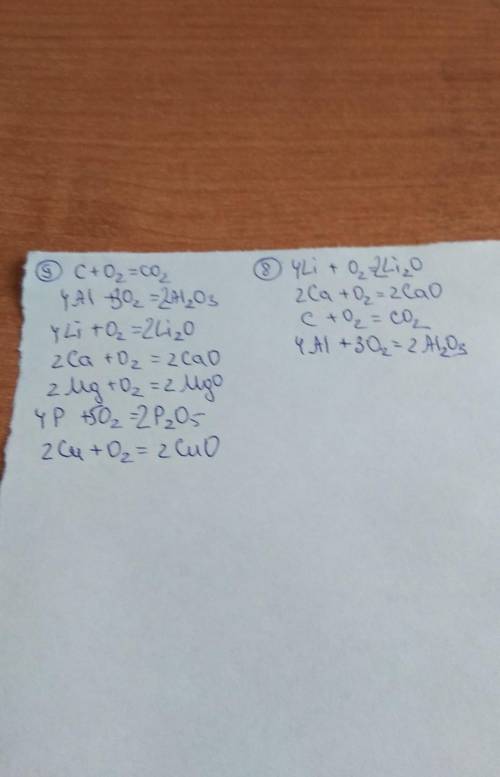 ⑨ C + O₂ = CO₂
4Al + 3O₂ = 2Al₂O₃
4Li + O₂ = 2Li₂O
2Ca + O₂ = 2CaO
2Mg + O₂ = 2MgO
4P + 5O₂ = 2P₂O₅
2Cu + O₂ = 2CuO
⑧ 4Li + O₂ = 2Li₂O
2Ca + O₂ = 2CaO
C + O₂ = CO₂
4Al + 3O₂ = 2Al₂O₃